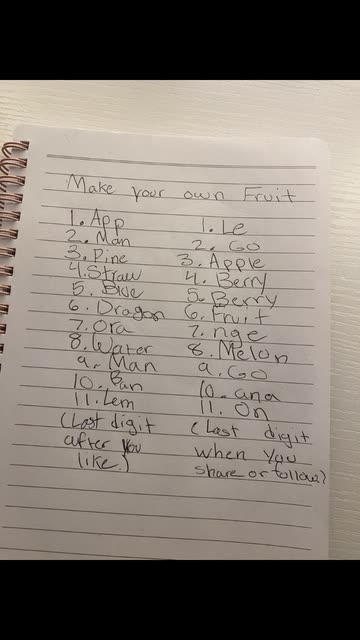 Make your own Fruit
1. App 1. Le
2. Man 2. Go
3. Pine 3. Apple
4. Straw 4. Berry
5. Blue 5. Berry
6. Dragon 6. Fruit
7. Ora 7. nge
8. Water 8. Melon
9. Man 9. Go
10. Ban 10. ana
11. Lem 11. On
(Last digit (Last digit
after you when you
like.) share or follow)